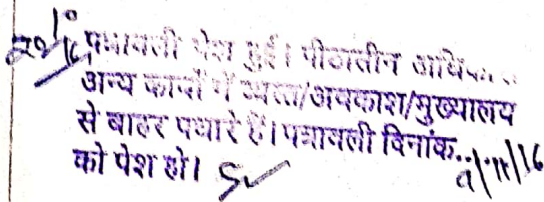 पत्रावली पेश हुई। पीठासीन अधिकारी
अन्य कार्यों में व्यस्त/अवकाश/मुख्यालय
से बाहर पधारे हैं। पत्रावली दिनांक..9/11/16
को पेश हो।